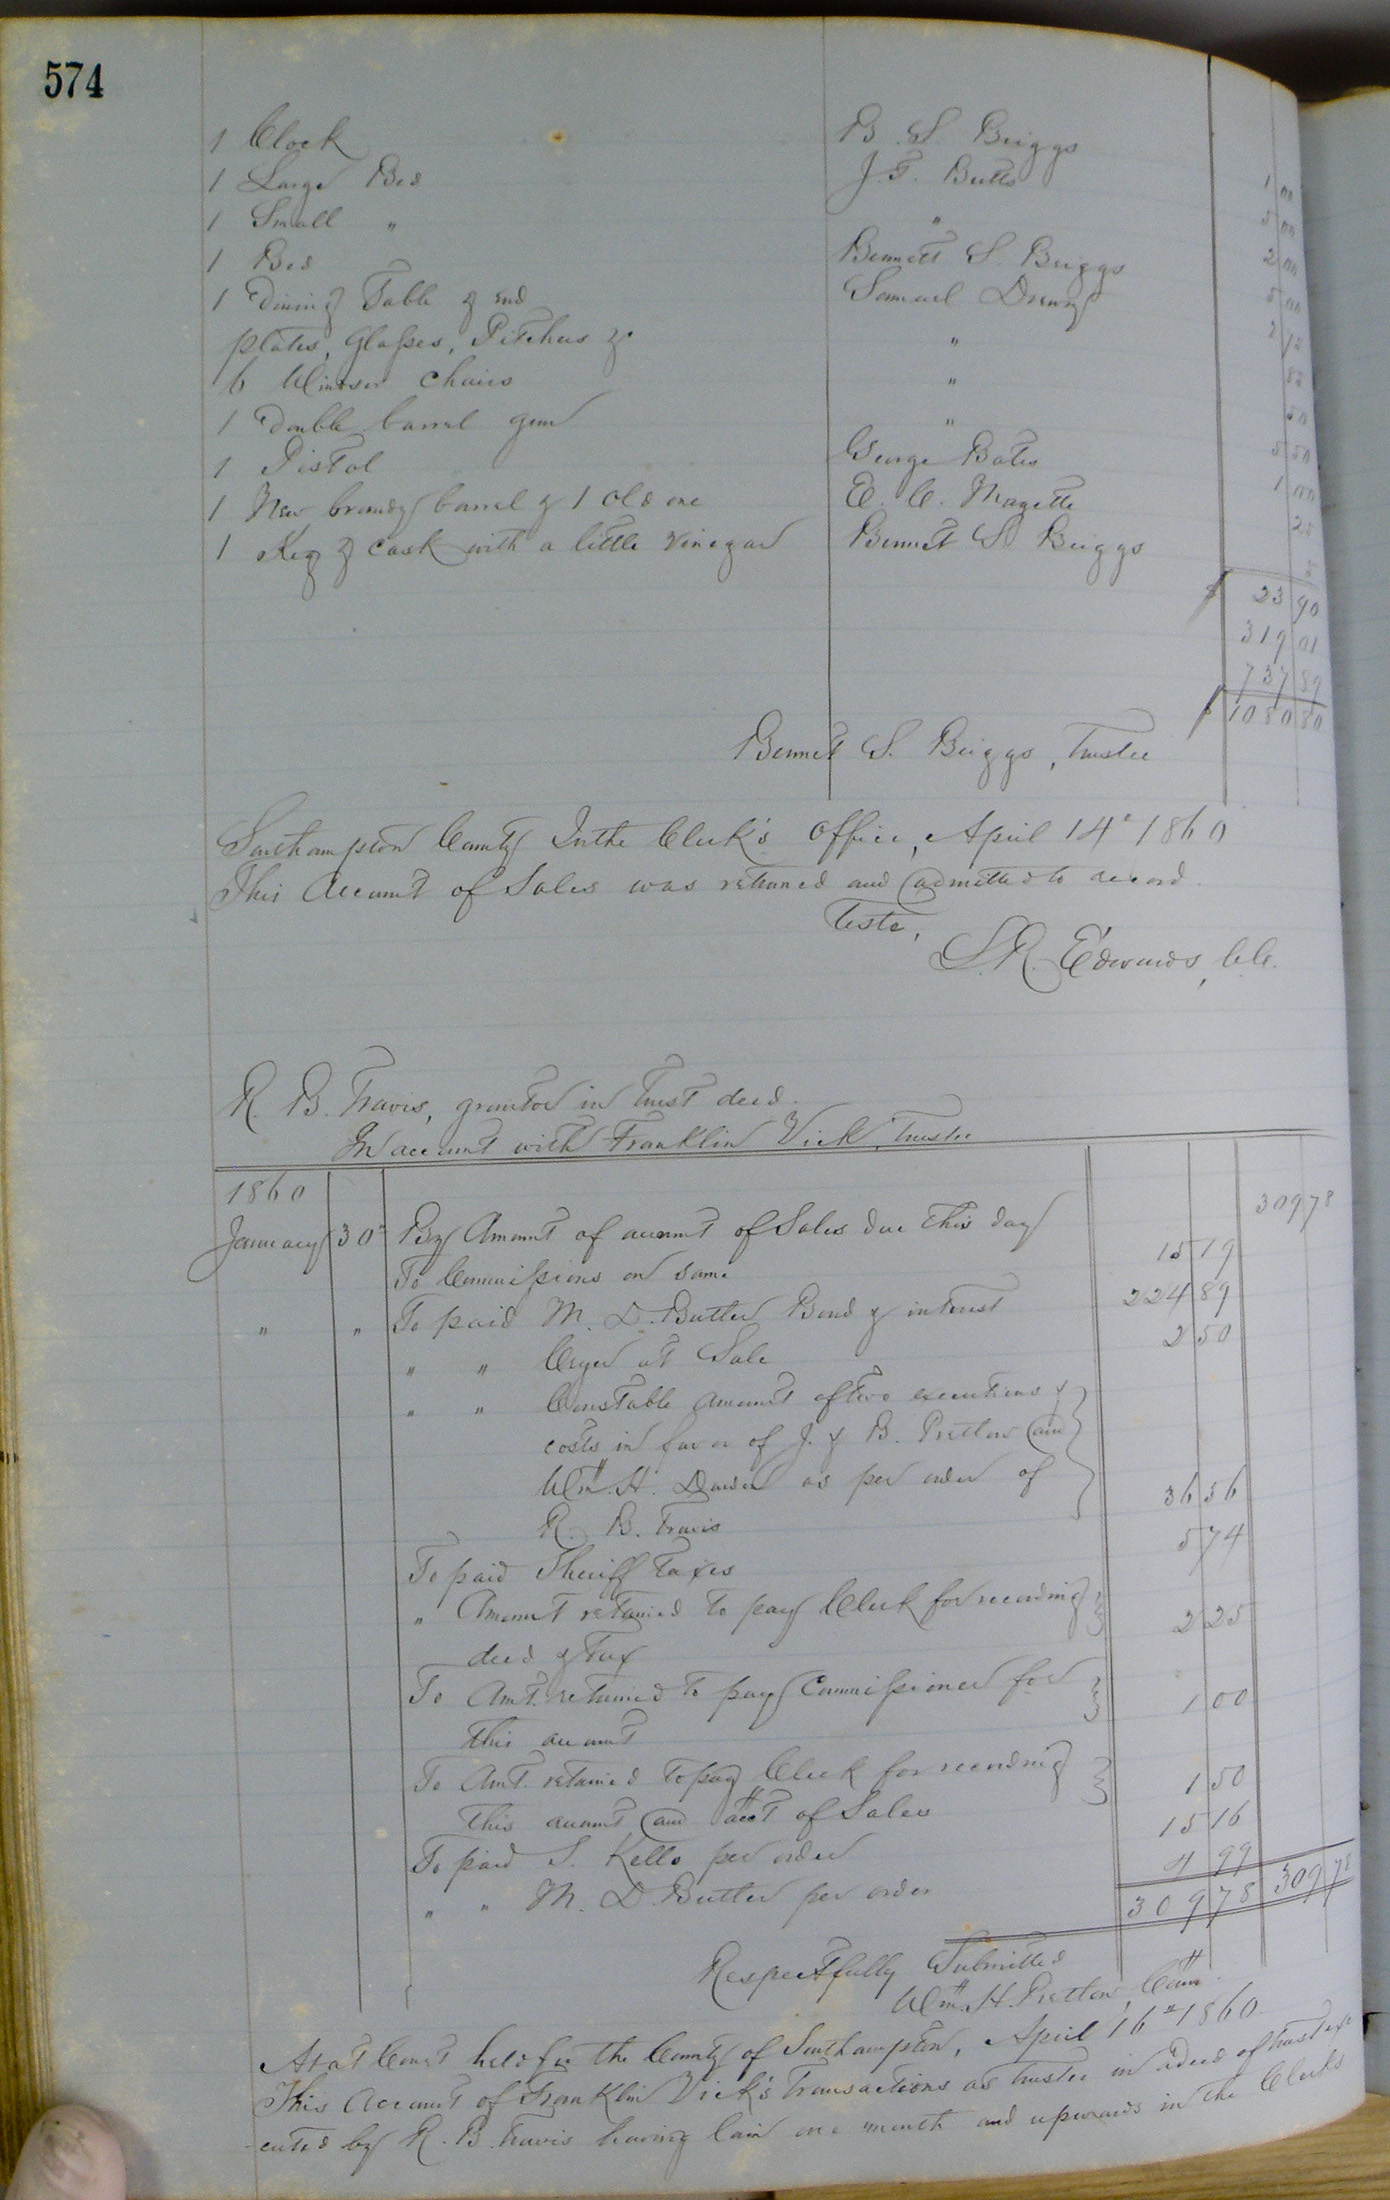 574
1 Clock B. S. Briggs 1 00
1 Large Bed J. T. Butts 5 00
1 Small " " 2 00
1 Bed Bennett S. Briggs 5 00
1 Dining Table & End Samuel Drewry
plates, Glasses, Pitchers &c "
6 Windsor Chairs " 50
1 Double barrel gun " 5 50
1 Pistol George Bates 1 00
1 New brandy barrel & 1 old one E. C. Magette 25
1 Keg & cask with a little Vinegar Bennet S. Briggs 5
$ 23 90
319 01
737 89
$ 1080 80
Bennet S. Briggs, Trustee
Southampton County In the Clerk's Office, April 14" 1860
This Account of Sales was returned and admitted to record.
Teste,
L. R. Edwards, C.C.
R. B. Travis, grantor in Trust deed.
In account with Franklin Vick, Trustee
1860 309 78
January 30" By Amount of account of Sales due this day
To Commissions on same 15 19
" " To paid M. D. Butler Bond & interest 224 89
" " Cryer at Sale 2 50
" " Constable amount of two executions &
costs in favor of J. & B. Pretlow and
Wm. H. Darden as per order of
R. B. Travis 36 56
To paid Sheriff Taxes 5 74
" Amount retained to pay Clerk for recording
deed & Tax 2 25
To Amt. retained to pay Commissioner for
this account 1 00
To Amt. retained to pay Clerk for recording
this account and acct of Sales 1 50
To paid S. Kello per order 15 16
" " M. D. Butler per order 4 99
309 78 309 78
Respectfully Submitted
Wm. H. Pretlow, Com.
At a Court held for the County of Southampton, April 16" 1860.
This Account of Franklin Vick's Transactions as trustee in a deed of trust exe
-cuted by R. B. Travis having lain one month and upwards in the Clerks